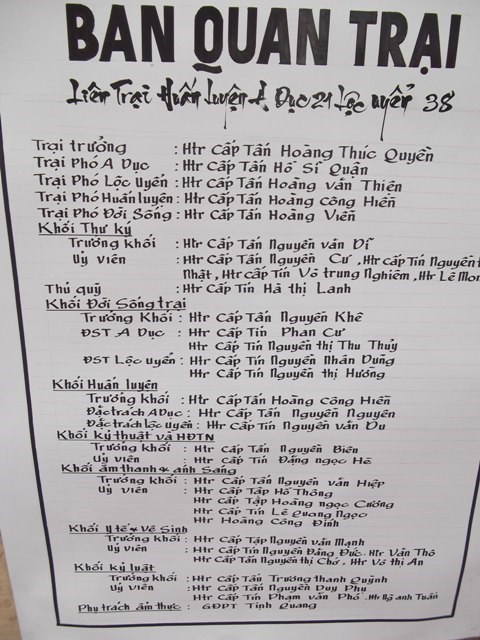 BAN QUAN TRẠI
Liên Trại Huấn Luyện A Dục 21 Lộc Uyển 38
Trại trưởng : Htr Cấp Tấn Hoàng Thúc Quyền
Trại Phó A Dục : Htr Cấp Tấn Hồ Sĩ Quận
Trại Phó Lộc Uyển : Htr Cấp Tấn Hoàng văn Thiên
Trại Phó Huấn luyện : Htr Cấp Tấn Hoàng Công Hiên
Trại Phó Đời Sống : Htr Cấp Tấn Hoàng Viên
Khối Thư ký
Trưởng khối : Htr Cấp Tấn Nguyễn văn Dĩ
Uỷ viên : Htr Cấp Tấn Nguyễn Cư , Htr cấp Tín Nguyễn
Nhật , Htr cấp Tín Võ trung Nghiêm , Htr Lê
Thủ quỹ : Htr Cấp Tín Hà thị Lanh
Khối Đời Sống trại
Trưởng Khối : Htr Cấp Tấn Nguyễn Khê
ĐST A Dục : Htr Cấp Tín Phan Cư
Htr Cấp Tín Nguyễn thị Thu Thuỷ
ĐST Lộc Uyển : Htr Cấp Tín Nguyễn Nhân Dũng
Htr Cấp Tín Nguyễn thị Hương
Khối Huấn luyện
Trưởng khối : Htr Cấp Tấn Hoàng Công Hiên
Đặc trách A Dục : Htr Cấp Tấn Nguyễn Nguyên
Đặc trách lộc uyển : Htr Cấp Tín Nguyễn văn Du
Khối kỹ thuật và HĐTN
Trưởng khối : Htr Cấp Tấn Nguyễn Biên
Uỷ viên : Htr Cấp Tín Đặng ngọc Hê
Khối âm thanh & anh Sang
Trưởng khối : Htr Cấp Tấn Nguyễn văn Hiệp
Uỷ viên : Htr Cấp Tập Hồ Thông
Htr Cấp Tập Hoàng ngọc Cương
Htr Cấp Tín Lê Quang Ngọc
Htr Hoàng Công Định
Khối Y tế & Vệ Sinh
Trưởng khối : Htr Cấp Tập Nguyễn văn Mạnh
Uỷ viên : Htr Cấp Tín Nguyễn Đăng Đức, Htr Văn Thô
Htr Cấp Tấn Nguyễn thị Chớ , Htr Võ thị An
Khối kỷ luật
Trưởng khối : Htr Cấp Tấn Trương thanh Quỳnh
Uỷ viên : Htr Cấp Tấn Nguyễn Duy Phu
Htr Cấp Tín Phạm văn Phó , Htr Ng anh Tuấn
Phụ trách ẩm thực : GĐPT Tịnh Quang